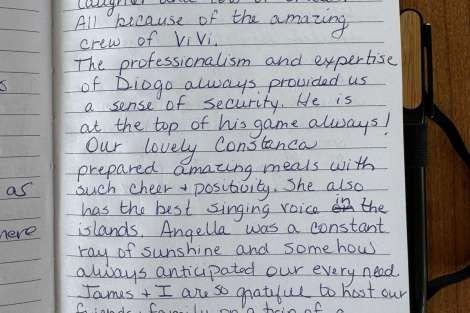 All because of the amazing
crew of ViVi.
The professionalism and expertise
of Diogo always provided us
a sense of security. He is
at the top of his game always!
Our lovely Constanca
prepared amazing meals with
such cheer + positivity. She also
has the best singing voice in the
islands. Angella was a constant
ray of sunshine and somehow
always anticipated our every need.
James + I are so grateful to host our
friends + family on a trip of a
as
here